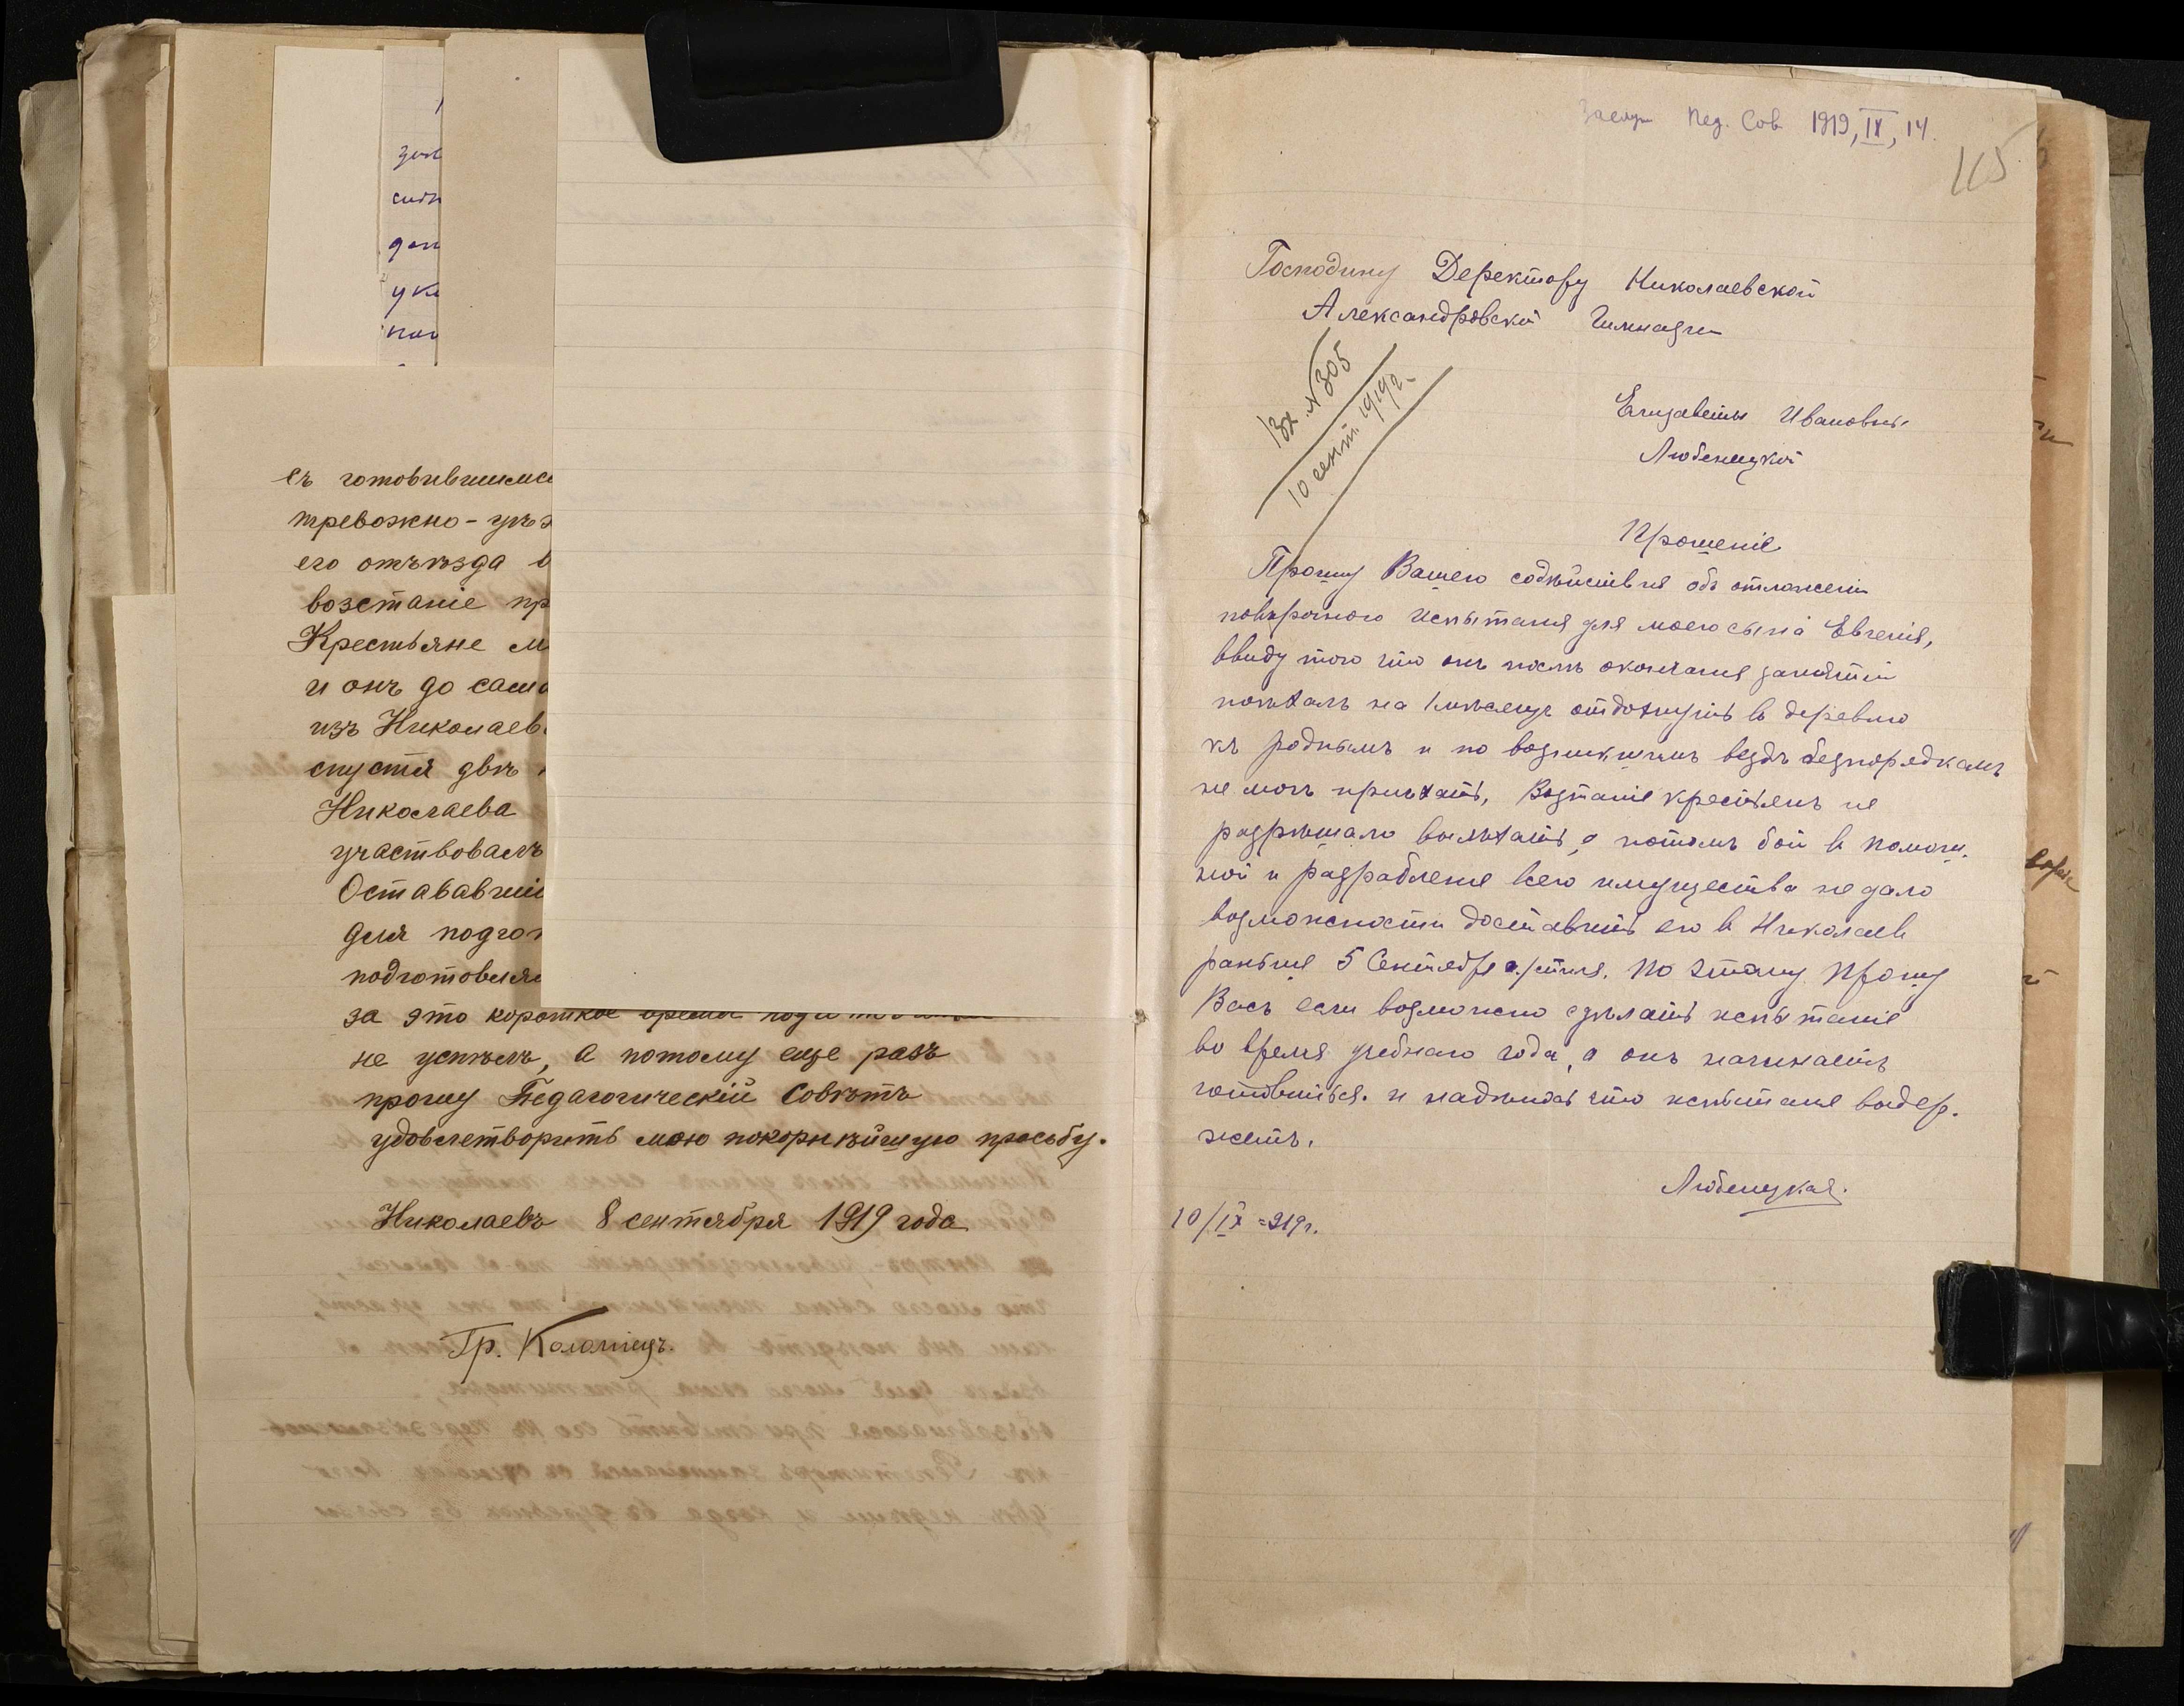 съ готовившимся
тревожно-
его отъѣзда в
возстаніе пр
Крестьяне м
и онъ до само
изъ Николаев
спустя двѣ
Николаева
участвовалъ
Остававшій
для подгот
подготовля
за это короткое время
не успѣлъ, а потому еще разъ
прошу Педагогическій Совѣтъ
удовлетворить мою покорнѣйшую просьбу.
Николаевъ 8 сентября 1919 года
Гр. Коломіецъ.
Пед. Сов. 1919, IX, 14.
115
Господину Деректору Николаевской
Александровской Гимназіи
Вх. № 305
10 сент. 1919 г.
Елизаветы Ивановны
Любенецкой
Прошеніе
Прошу Вашего содѣйствія объ отложеніи
повѣрочного испытанія для моего сына Евгенія,
ввиду того что онъ послѣ окончанія занятій
поѣхалъ на 1 мѣсяцъ отдохнуть в деревню
къ роднымъ и по возникшимъ вездѣ безпорядкамъ
не могъ пріѣхать, Возтаніе крестьянъ не
разрѣшало выѣхать, а потомъ бой в Помощ
ной и разграбленіе всего имущества не дало
возможности доставить его в Николаев
раньше 5 Сентября с./стиля. По этому Прошу
Васъ если возможно сдѣлать испытаніе
во время учебнаго года, а онъ начинаетъ
готовиться. и надѣюсь что испытаніе выдер-
житъ.
Любенецкая.
10/IX -919г.